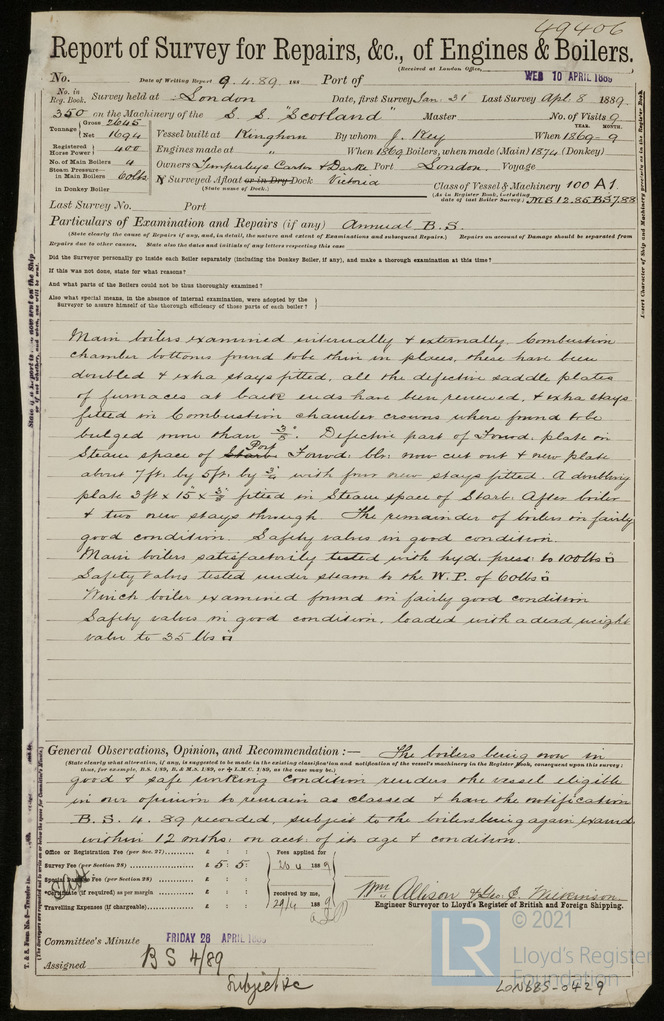 49406
Report of Survey for Repairs, &c., of Engines & Boilers.
(Received at London Office,
WED 10 APRIL 1889
No. Date of Writing Report 9.4.89 188 Port of
No. in Reg. Book. Survey held at London Date, first Survey Jan. 31 Last Survey Apl. 8 1889.
350 on the Machinery of the S. S. "Scotland" Master No. of Visits 9
Tonnage Gross 2645 Net 1694
Vessel built at Kinghorn By whom J. Key When 1869-9 YEAR. MONTH.
Registered Horse Power 400 Engines made at " When 1869 Boilers, when made (Main) 1874 (Donkey)
No. of Main Boilers 4 Owners Temperleys Carter & Darke Port London. Voyage
Steam Pressure in Main Boilers 60lbs Surveyed Afloat or in Dry Dock Victoria
(State name of Dock.)
in Donkey Boiler
Class of Vessel & Machinery 100 A1.
(As in Register Book, including date of last Boiler Survey.) MB 12.85. BS 7.88
Last Survey No. Port
Particulars of Examination and Repairs (if any) Annual B.S.
(State clearly the cause of Repairs, if any, and in detail, the nature and extent of Examinations and subsequent Repairs.) Repairs on account of Damage should be separated from
Repairs due to other causes, State also the dates and initials of any letters respecting this case
Did the Surveyor personally go inside each Boiler separately (including the Donkey Boiler, if any), and make a thorough examination at this time?
If this was not done, state for what reasons?
And what parts of the Boilers could not be thoroughly examined?
Also what special means, in the absence of internal examination, were adopted by the
Surveyor to assure himself of the thorough efficiency of those parts of each boiler?
Main boilers examined internally & externally. Combustion
chamber bottoms found to be thin in places, these have been
doubled & extra stays fitted, all the defective saddle plates
of furnaces at back ends have been renewed, & extra stays
fitted in Combustion chamber crowns where found to be
bulged more than 3/8". Defective part of Forwd. plate in
Steam space of Starb. Port Forwd. blr. now cut out & new plate
about 7ft. by 5ft. by 3/4 with four new stays fitted. A doubling
plate 3ft x 15" x 3/8 fitted in Steam space of Starb. After boiler
& two new stays through. The remainder of boilers in fairly
good condition. Safety valves in good condition.
Main boilers satisfactorily tested with hyd. press. to 100lbs □
Safety valves tested under steam to the W.P. of 60lbs □
Winch boiler examined found in fairly good condition
Safety valves in good condition, loaded with a dead weight
valve to 35 lbs □
General Observations, Opinion, and Recommendation:— The boilers being now in
(State clearly what alteration, if any, is suggested to be made in the existing classification and notification of the vessel's machinery in the Register Book, consequent upon this survey;
thus, for example, B.S. 1/89, B. & M.S. 1/89, or L.M.C. 1/89, as the case may be.)
good & safe working condition renders the vessel eligible
in our opinion to remain as classed & have the notification
B.S. 4. 89 recorded, subject to the boilers being again examd
within 12 months: on acct. of its age & condition.
Office or Registration Fee (per Sec. 27) £ : :
Survey Fee (per Section 28) £ 5 : 5 :
Fee (per Section 28) £ : :
*Certificate (if required) as per margin £ : :
Travelling Expenses (if chargeable) £ : :
Fees applied for
188 9
received by me,
29/4 188 9
Wm. Allison & Geo. E. Wilkinson.
Engineer Surveyor to Lloyd's Register of British and Foreign Shipping.
Committee's Minute FRIDAY 26 APRIL 1889
Assigned B S 4/89
Subject &c
LR
© 2021
Lloyd's Register
Foundation
LON685-0429